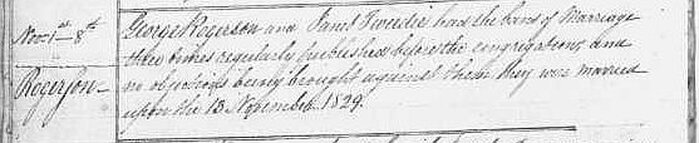 Nov 1st — 8th
Rogerson —
George Rogerson and Janet Tweedie had the bans of Marriage
three times regularly published before the congregation, and
no objections being brought against them they were married
upon the 13 November 1829.